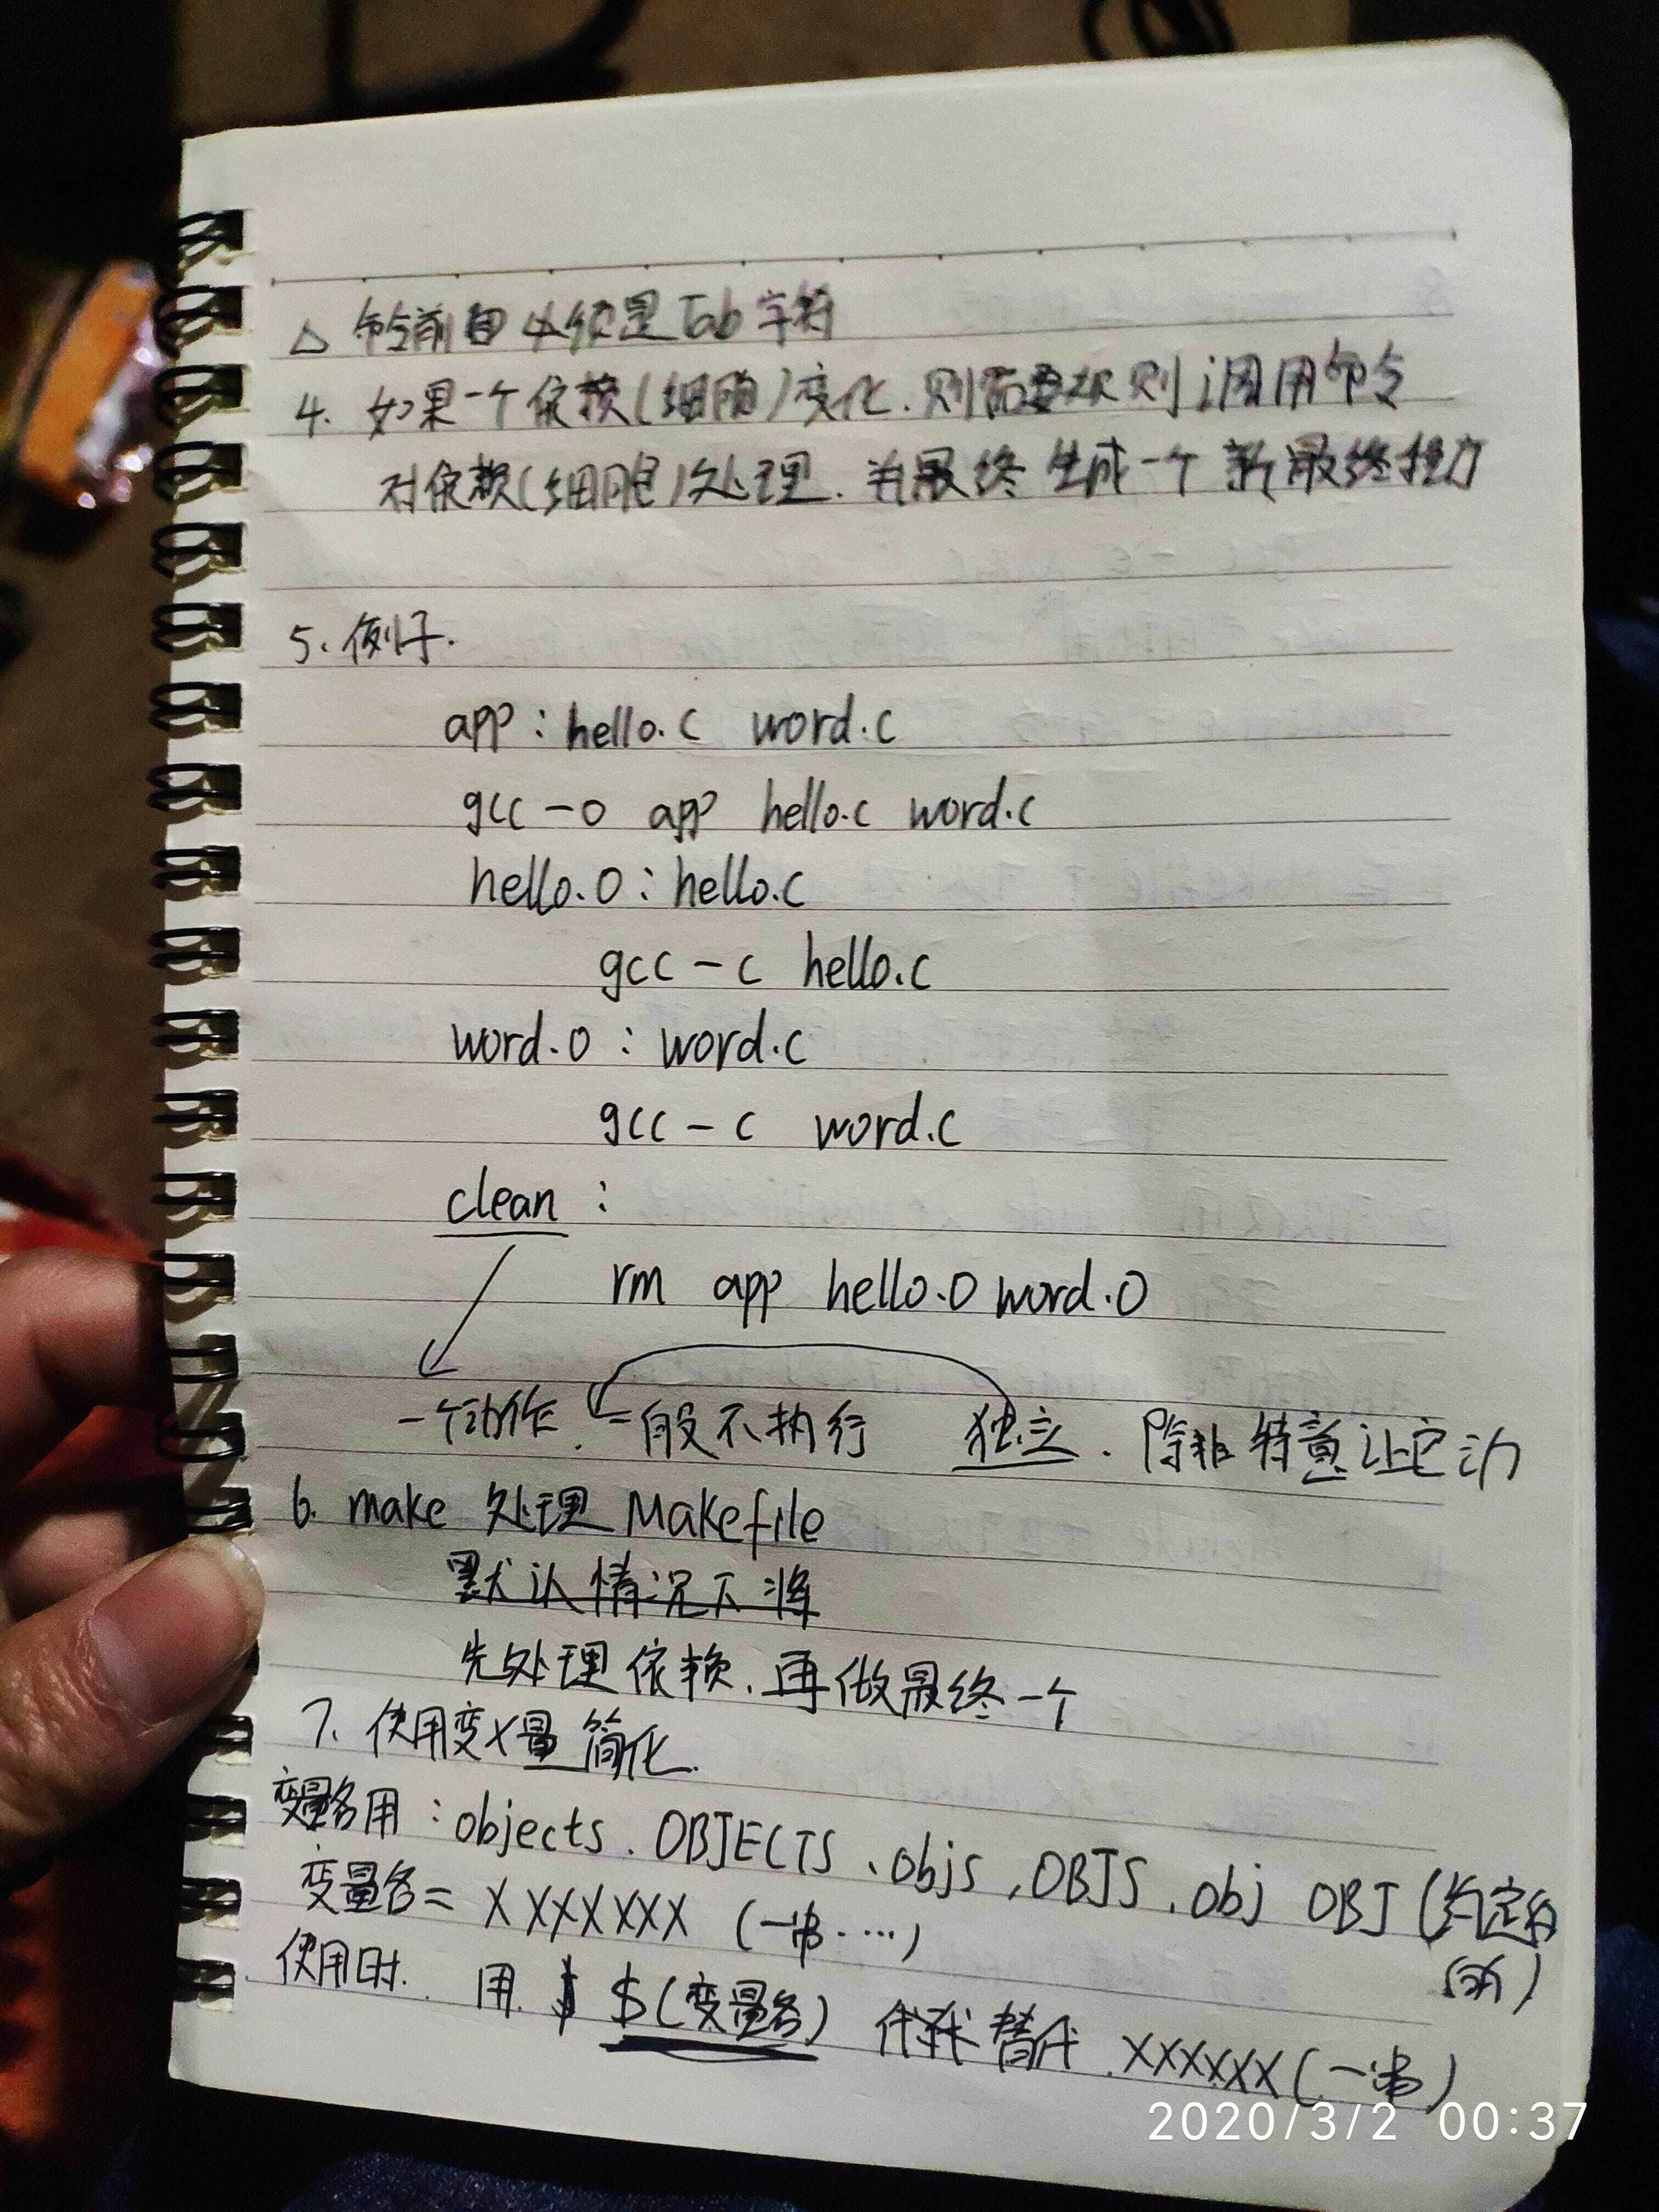 △ 命令前自必须是Tab字符
4. 如果一个依赖(细胞)变化.则需要规则调用命令
对依赖(细胞)处理.并最终生成一个新最终
5.例子.
app:hello.c word.c
gcc -o app hello.c word.c
hello.o:hello.c
gcc -c hello.c
word.o : word.c
gcc -c word.c
clean :
rm app hello.o word.o
一个动作. 一般不执行 独立. 除非特意让它动
6. make 处理 Makefile
默认情况下将
先处理依赖.再做最终一个
7. 使用变量简化.
变量名用:objects. OBJECTS、objs,OBJS.obj OBJ(约定
变量名= XXXXXXX (一串····)
使用时. 用 $ $(变量名) 替代 XXXXXX(一串)
2020/3/2 00:37